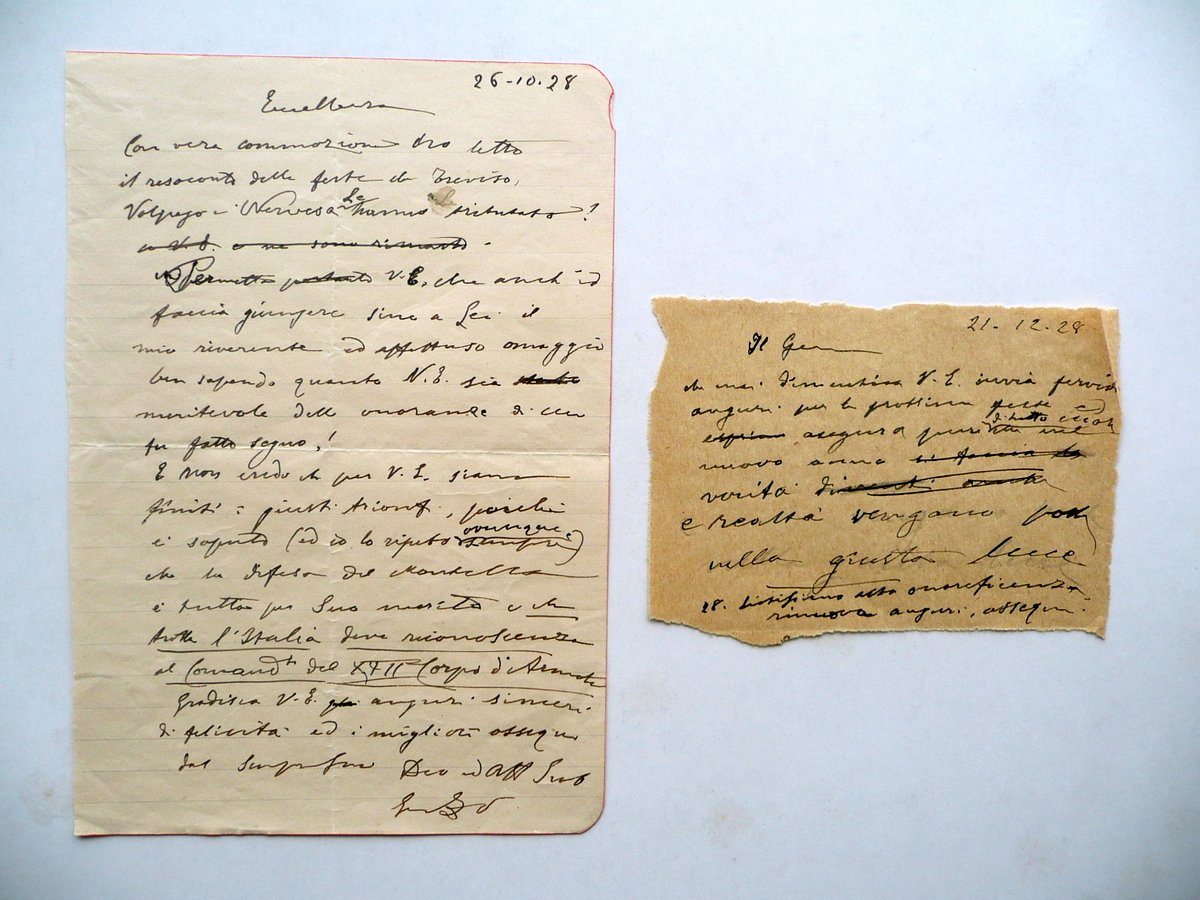 26-10-28
Eccellenza
Con vera commozione ho letto
il resoconto delle feste di Treviso,
Volpago e Nervesa Le hanno tributato!
a V.E. e ne sono rimasto
Permetta pertanto V.E. che anch'io
faccia giungere sino a Lei il
mio riverente ed affettuoso omaggio
ben sapendo quanto V.E. sia stato
meritevole delle onoranze di cui
fu fatto segno!
E non credo che per V.E. siano
finiti i giusti trionfi, poiché
è saputo (ed io lo ripeto sempre ovunque)
che la difesa del Montello
è tutto per Suo merito e che
tutta l'Italia deve riconoscenza
al Comand.te del XXII Corpo d'Armata
Gradisca V.E. auguri sinceri
di felicità ed i migliori ossequi
dal Suo
21-12-28
Il Gen
che mai dimentica V.E. invia fervidi
auguri per le prossime feste ed
esprime nel
nuovo anno si faccia la
verità
e realtà vengano
nella giusta luce
alta onorificenza
rinnova auguri, ossequi.